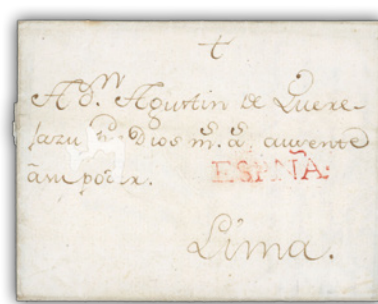 A Dn. Agustin de Quere-
jazu gue. Dios ms. as. auzente
â mi poder.
ESPAÑA.
Lima.